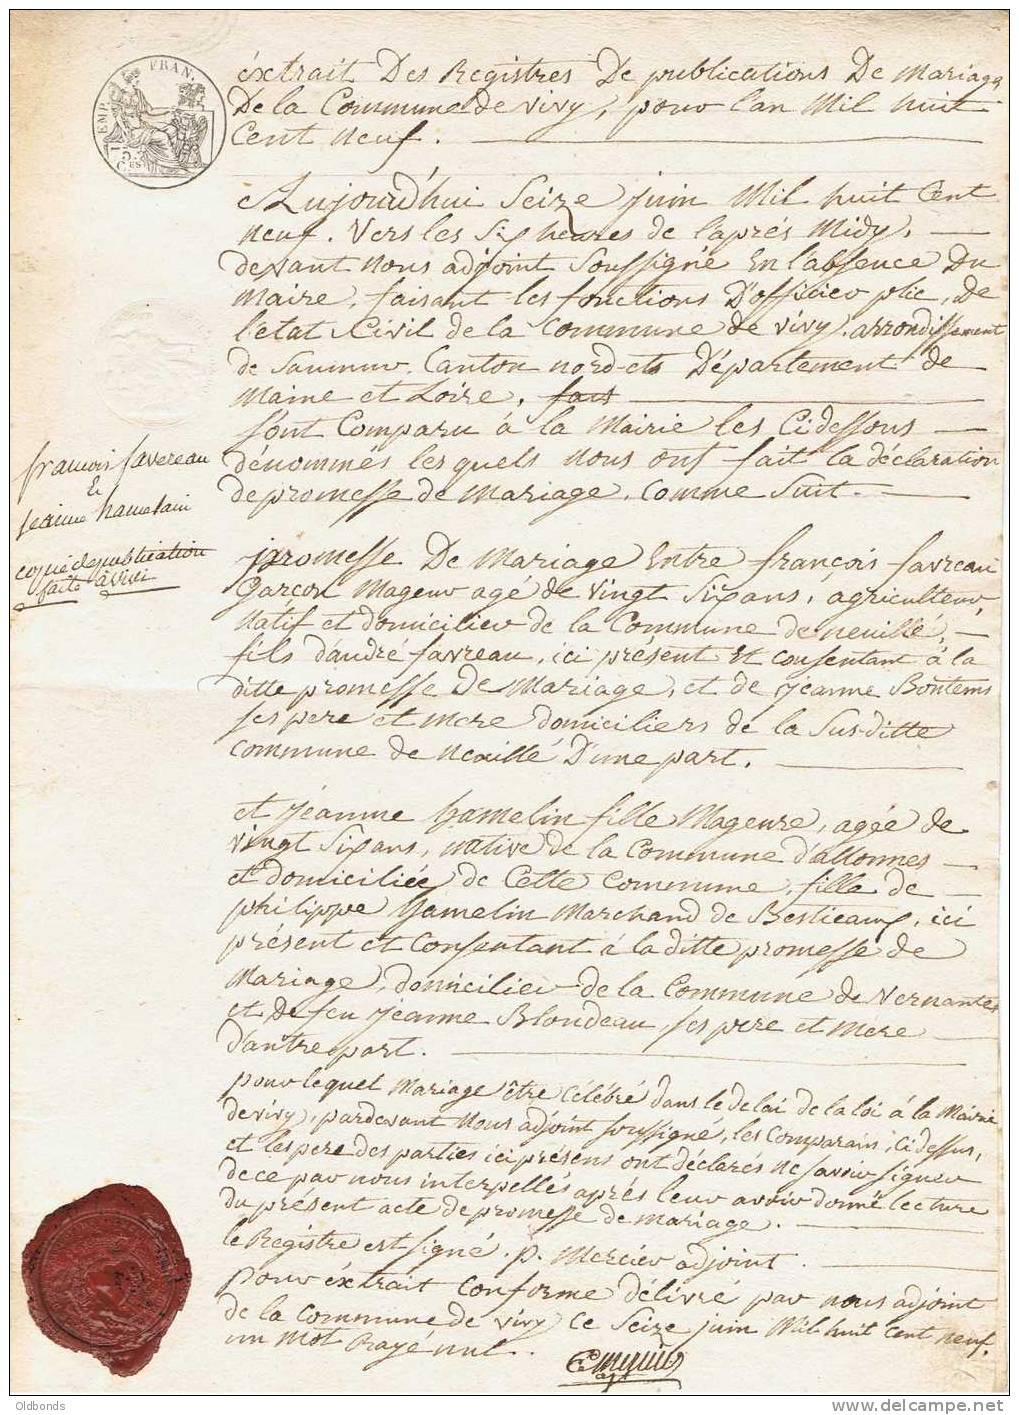 EMP. FRAN.
15 C.
CES
éxtrait Des Registres De publications De Mariages
De la Commune de vivy, pour l'an Mil huit
Cent neuf.
Aujourd'hui Seize juin Mil huit Cent
neuf. Vers les Six heures de l'aprés Midy,
devant nous adjoint Soussigné En l'absence Du
Maire, faisant les fonctions D'officier plic, De
l'état Civil de la Commune de vivy, arrondissement
de Saumur, Canton nord-ets Département de
Maine et Loire, fait
sont Comparu à la Mairie les Cidessous
dénommés les quels nous ont fait la déclaration
de promesse de Mariage, Comme Suit.
francois favereau
Et
jeanne hamelain
copie de publication
faite à vivi
promesse De Mariage Entre françois favreau
Garçon Mageur agé de vingt Six ans, agriculteur,
Natif et domicilier de la Commune de neuillé,
fils d'andré favreau, ici présent Et consentant à la
ditte promesse De Mariage, et de jeanne Bontems
ses pere et mere domiciliers de la Sus-ditte
Commune de neuillé D'une part.
et jeanne hamelin fille Mageure, agée de
vingt Six ans, native de la Commune d'allonnes
et domiciliée de Cette Commune, fille de
philippe hamelin Marchand de Bestieaux, ici
présent et Consentant à la ditte promesse de
Mariage, domicilier de la Commune de Vernantes
et De feu jeanne Blondeau, ses pere et mere
D'autre part.
pour lequel Mariage être Célébré dans le delai de la loi à la Mairie
de vivy, pardevant Nous adjoint soussigné, les Comparans, Ci dessus,
et les pere des parties ici présens ont déclarés ne savoir signer
de ce par nous interpellés aprés leur avoir donné lecture
Du présent acte de promesse de mariage.
le Registre est signé. p. Mercier adjoint.
pour éxtrait Conforme délivré par nous adjoint
de la Commune de vivy Ce Seize juin Mil huit Cent neuf.
un mot Rayé nul.
Oldbonds
www.delcampe.net